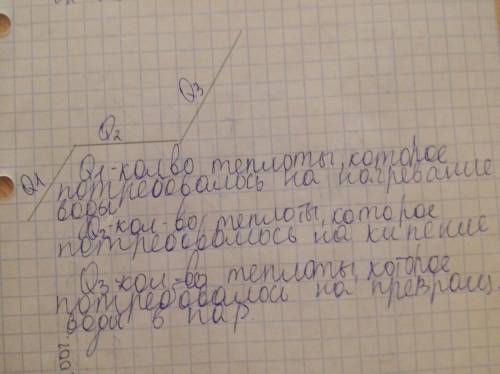 Q3
Q2
Q1
Q1-кол-во теплоты, которое
потребовалось на нагревание
воды
Q2-кол-во теплоты, которое
потребовалось на кипение
Q3-кол-во теплоты, которое
потребовалось на превращ.
воды в пар.